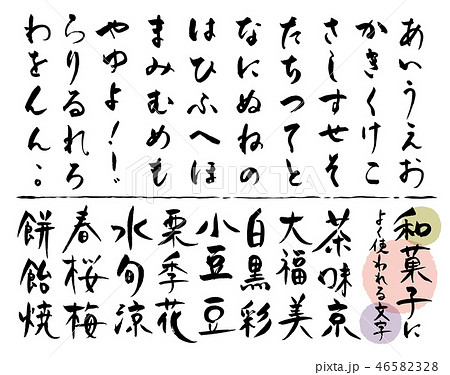 あいうえお
かきくけこ
さしすせそ
たちつてと
なにぬねの
はひふへほ
まみむめも
やゆよ!
らりるれろ
わをんん、。
和菓子に
よく使われる文字
茶味京
大福美
白黒彩
小豆豆
栗季花
水旬涼
春桜梅
餅飴焼
pixta.jp - 46582328